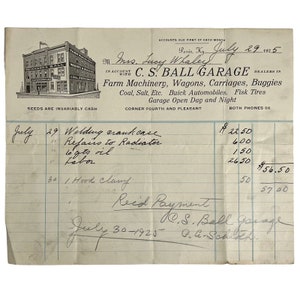 ACCOUNTS DUE FIRST OF EACH MONTH
Paris, Ky. July 29 1925
M Mrs. Lucy Whaley
IN ACCOUNT WITH C. S. BALL GARAGE DEALERS IN
Farm Machinery, Wagons, Carriages, Buggies
Coal, Salt, Etc. Buick Automobiles, Fisk Tires
Garage Open Day and Night
SEEDS ARE INVARIABLY CASH CORNER FOURTH AND PLEASANT BOTH PHONES
July 29 Welding crank case $ 22 50
" Repairs to Radiator 6 00
" 6 qts oil 1 50
" Labor 26 50 $56.50
30 1 Hood clamp 50
57.00
Rec'd Payment
C. S. Ball Garage
July 30-1925